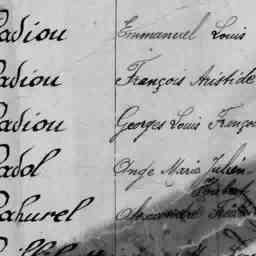 adiou Emmanuel Louis
adiou François Aristide
adiou Georges Louis Françoi
adol Ange Marie Julien
ahurel Alexandre